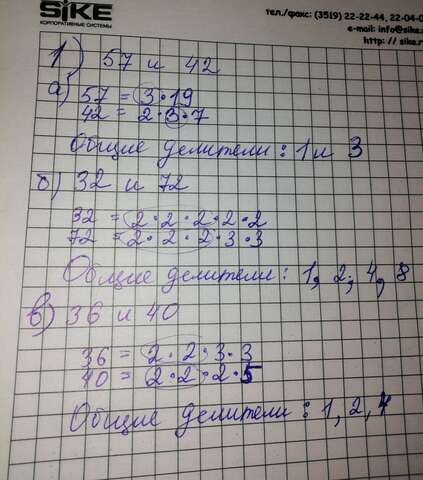 SIKE
КОРПОРАТИВНЫЕ СИСТЕМЫ
тел./факс: (3519) 22-22-44, 22-04-0
e-mail: info@sike.
http: // sike.
1) 57 и 42
а) 57 = 3 · 19
42 = 2 · 3 · 7
Общие делители: 1 и 3
б) 32 и 72
32 = 2 · 2 · 2 · 2 · 2
72 = 2 · 2 · 2 · 3 · 3
Общие делители: 1, 2; 4, 8
в) 36 и 40
36 = 2 · 2 · 3 · 3
40 = 2 · 2 · 2 · 5
Общие делители: 1, 2, 4